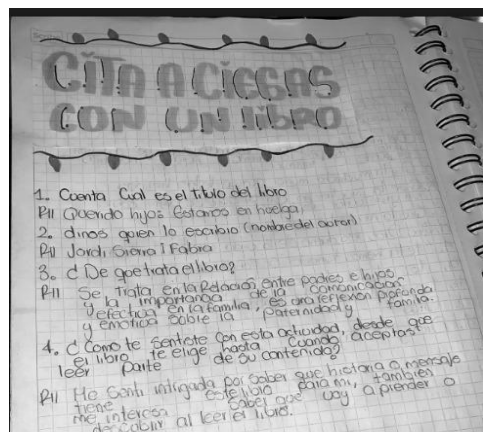 CITA A CIEGAS
CON UN LIBRO
1. Cuenta Cual es el titulo del libro
R/ Querido hijos Estamos en huelga,
2. dinos quien lo escribio (nombre del autor)
R/ Jordi Sierra I Fabra
3. ¿De que trata el libro?
R/ Se Trata en la Relación entre padres e hijos
y la importancia de la comunicación
efectiva en la familia, es una reflexión profunda
y emotiva sobre la paternidad y familia.
4. ¿Como te sentiste con esta actividad, desde que
el libro te elige hasta cuando aceptas
leer parte de su contenido?
R/ Me Senti intrigada por saber que historia o mensaje
tiene este libro para mi, también
me interesa saber que voy aprender o
descubrir al leer el libro.